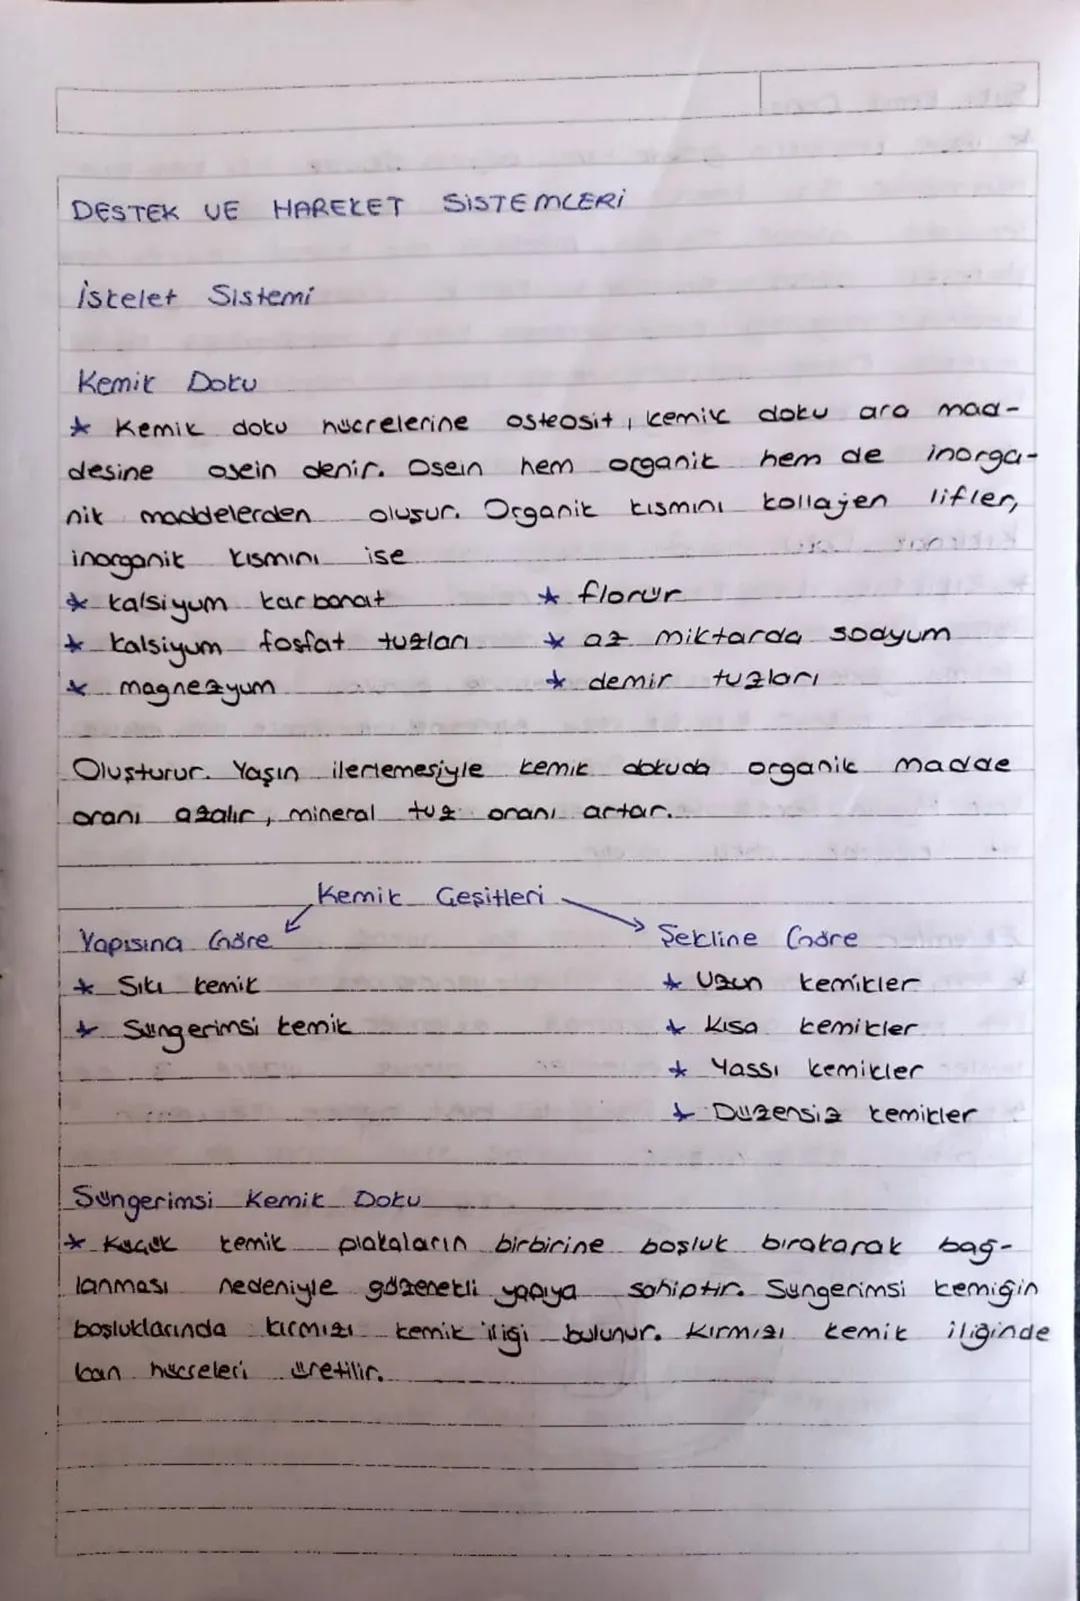 DESTEK VE HAREKET SİSTEMLERİ
İskelet Sistemi
Kemik Doku
* Kemik doku hücrelerine osteosit, kemik doku ara mad-
desine osein denir. Osein hem organik hem de inorga-
nik maddelerden oluşur. Organik kısmını kollajen lifler,
inorganik kısmını ise
* kalsiyum karbonat * florür
* kalsiyum fosfat tuzları * az miktarda sodyum
* magnezyum * demir tuzları
Oluşturur. Yaşın ilerlemesiyle kemik dokuda organik madde
oranı azalır, mineral tuz oranı artar.
Kemik Çeşitleri
Yapısına Göre Şekline Göre
* Sıkı kemik * Uzun kemikler
* Süngerimsi kemik * Kısa kemikler
* Yassı kemikler
* Düzensiz kemikler
Süngerimsi Kemik Doku
* Küçük kemik plakaların birbirine boşluk bırakarak bağ-
lanması nedeniyle gözenekli yapıya sahiptir. Süngerimsi kemiğin
boşluklarında kırmızı kemik iliği bulunur. Kırmızı kemik iliğinde
kan hücreleri üretilir.